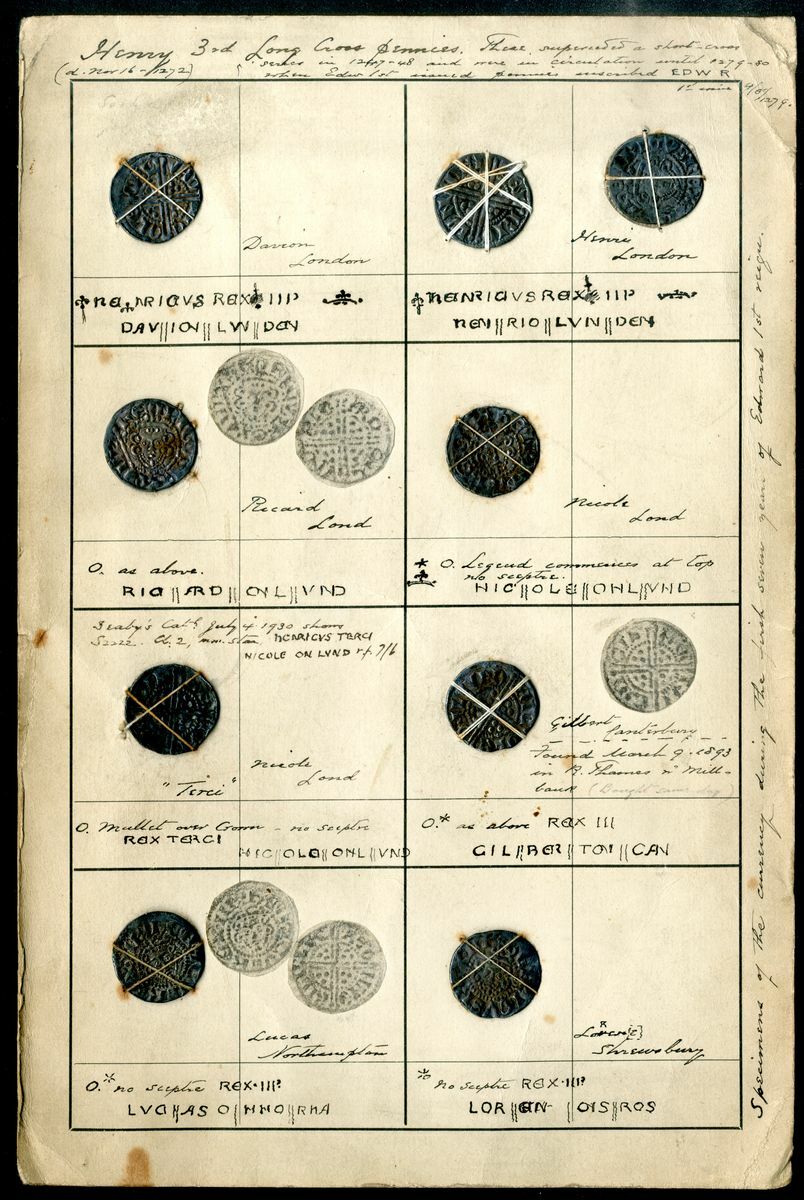 Henry 3rd Long Cross pennies. These superceded a short-cross
(d. Nov 16-1272) series in 1247-48 and were in circulation until 1279-80
when Edw 1st issued pennies inscribed EDW R
1279.
Davion
London
Henri
London
HENRICVS REX IIIP
DAV||ION||LVN||DEN
HENRICVS REX IIIP
HEN||RIO||LVN||DEN
Ricard
Lond
Nicole
Lond
O. as above.
RIC||ARD||ONL||VND
O. Legend commences at top
no sceptre.
NIC||OLE||ONL||VND
Seaby's Catg July 4. 1930 shows
S222. Cl. 2, mm. star. HENRICVS TERCI
NICOLE ON LVND v.f. 7/6
"Terci"
Nicole
Lond
Gilbert
Canterbury
Found March 9. 1893
in R. Thames nr Mill-
bank (Bought same day)
O. Mullet over Crown - no sceptre
REX TERCI
NIC||OLE||ONL||VND
O.* as above REX III
GIL||BER||TON||CAN
Lucas
Northampton
Shrewsbury
O.* no sceptre REX·IIIP
LVC||AS O||NNO||RHA
* no sceptre REX·IIIP
LOR||EN||ONS||ROS
Specimens of the currency during the first seven years of Edward 1st reign.